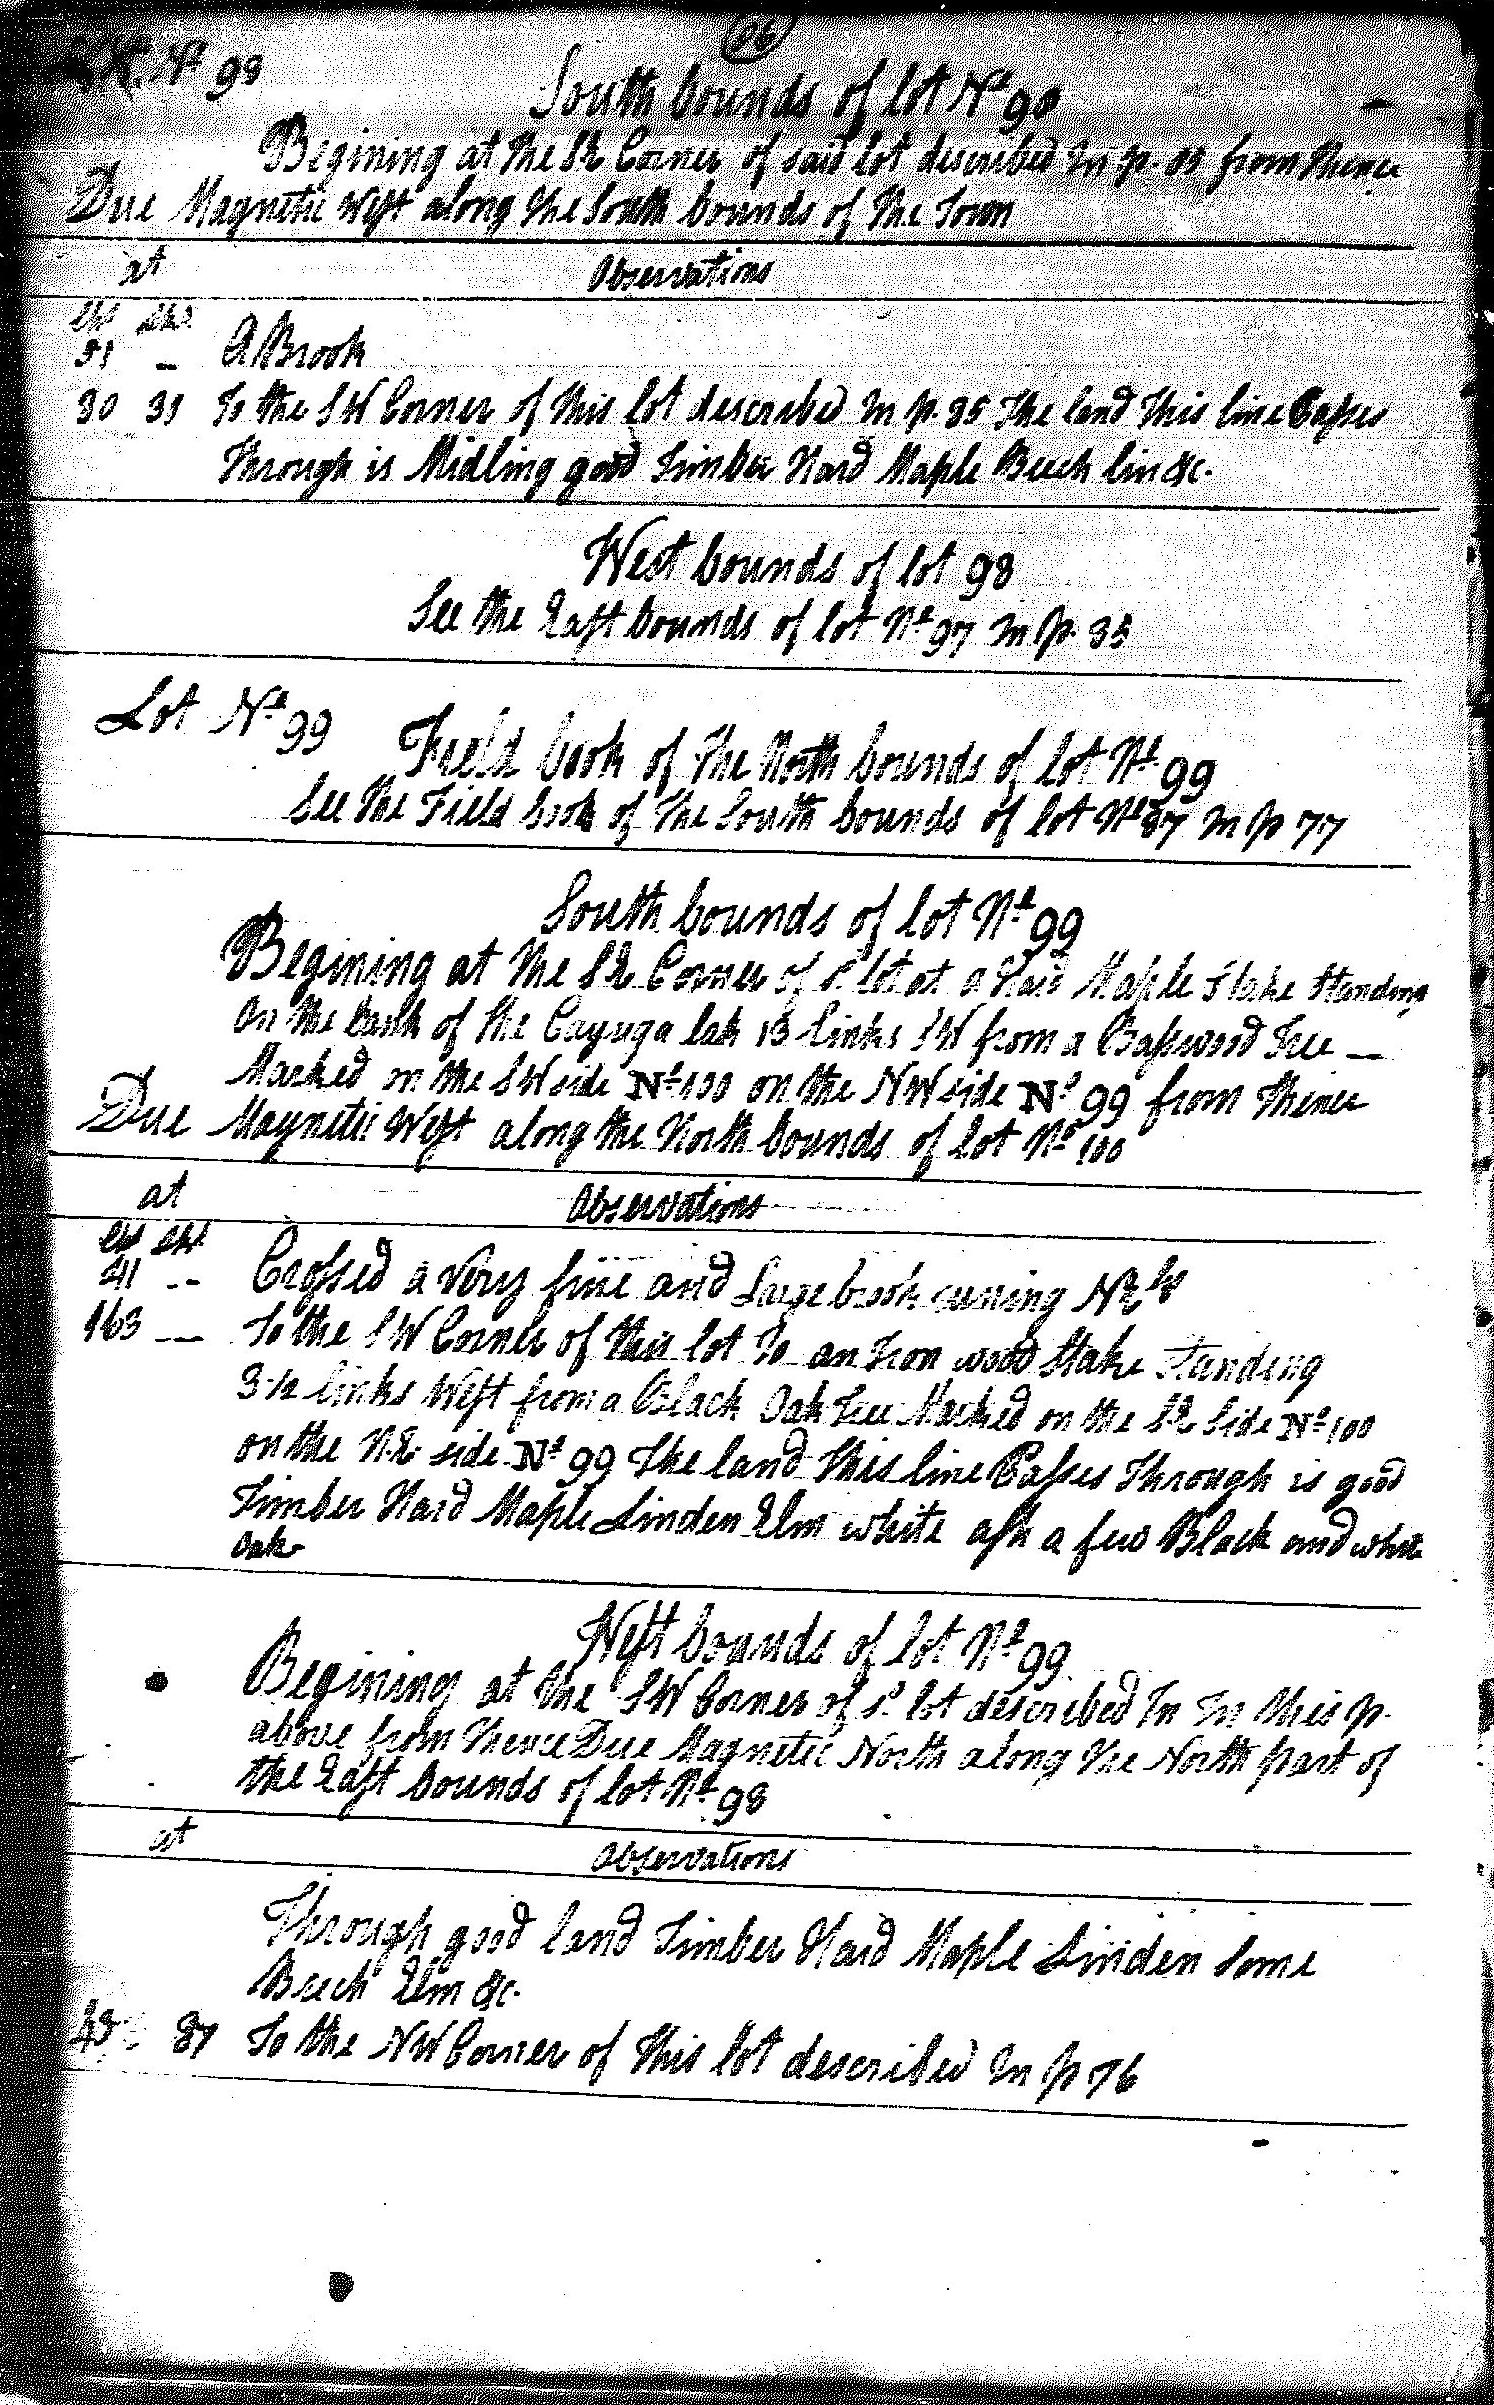 Lot Nº 98
South bounds of lot Nº 98
Begining at the SE Corner of said lot described In p. from thence
Due Magnetic West along the South bounds of the Town
at Observations
chs lks
51 – A Brook
80 39 To the SW Corner of this lot described In p. 85 The land This line Passes
Through is Midling good Timber Hard Maple Beech lin &c.
West bounds of lot 98
See the East bounds of lot Nº 97 In p. 85
Lot Nº 99
Field book of The North bounds of lot Nº 99
See The Field book of The South bounds of lot Nº 87 In p 77
South bounds of lot Nº 99
Begining at the SE Corner of sd. lot at a Hard Maple Stake Standing
On the bank of the Cayuga lak 13 links SW from a Basswood Tree —
Marked on the SW side Nº 100 on the NW side Nº 99 from Thence
Due Magnetic West along the North bounds of lot Nº 100
at Observations
chs lks
41 -- Crossed a very fine and Large brook running NE
163 — To the SW Corner of this lot To an Iron wood Stake Standing
links West from a Black Oak Tree Marked on the SE Side Nº 100
on the N.E side Nº 99 The land This line Passes Through is good
Timber Hard Maple Linden Elm white ash a few Black and white
Oak
West bounds of lot Nº 99
Begining at the SW Corner of sd. lot described In In this p.
above from Thence Due Magnetic North along The North part of
the East bounds of lot Nº 98
at Observations
Through good land Timber Hard Maple Linden Some
Beech Elm &c.
87 To the NW Corner of This lot described In p 76